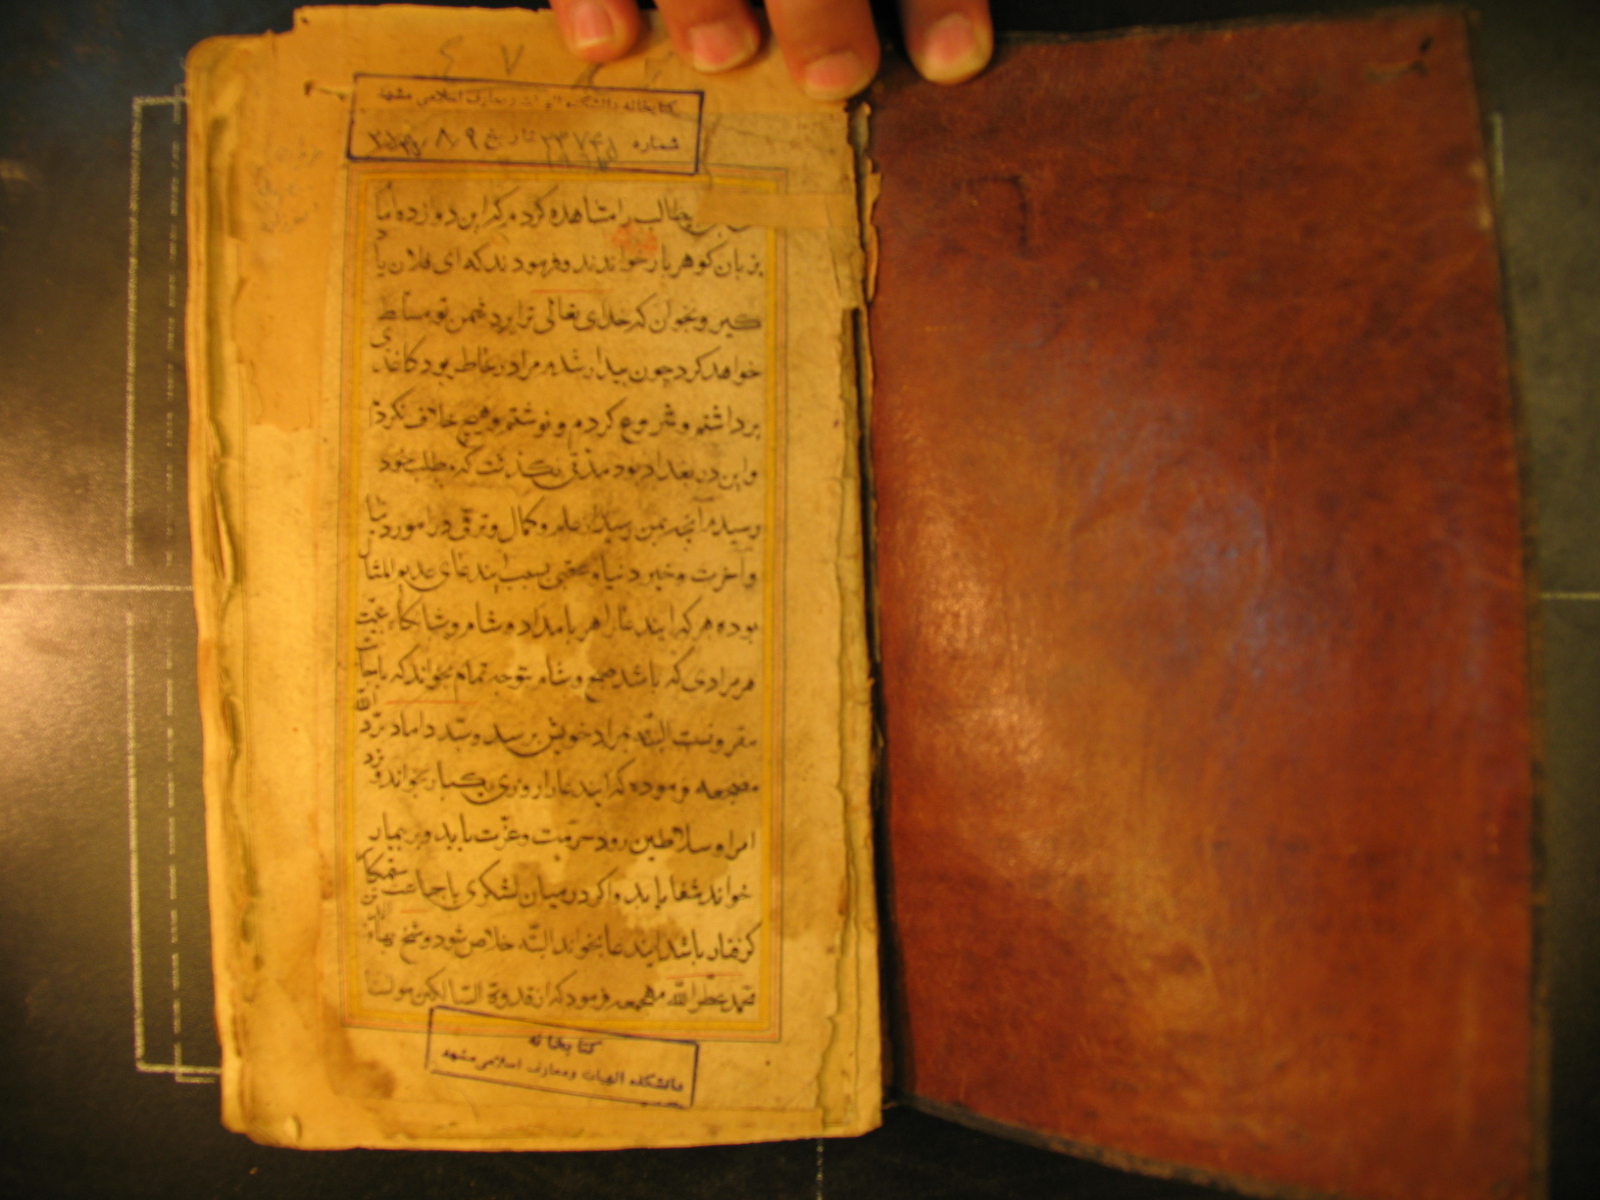 ۴۷
کتابخانه دانشکده الهیات و معارف اسلامی مشهد
شماره ۲۳۷۴۵ تاریخ
بیطالب را مشاهده کردم که این دوازده اما
بزبان کوهر بار خواندند و فرمودند که ای فلان یا
کیر و بخوان که خدای تعالی ترا بر دشمن تو مسلط
خواهد کرد چون بیدار شدم مرا در خاطر بود کاغذی
برداشتم و شروع کردم و نوشتم و هیچ خلاف نکرد
و این در بغداد بود مدتی نکذشت که مطلب خود
رسیدم آنچه بمن رسید از علم و کمال و ترقی در امور دنیا
و آخرت و خیر دنیا و عقبی بسبب ایندعای عدیم المثال
بوده هر که ایندعا را هر بامداد و شام و شبانکاه
هر مرادی که باشد صبح و شام بتوجه تمام بخواند که باجابت
مقرونست البته بمراد خویش برسد و سید داماد
فرموده که ایندعا را روزی یکبار بخواند و نزد
امرا و سلاطین رود حرمت و عزت یابد و بر بیمار
خواند شفا یابد و اکر در میان لشکری یا جماعت ستمکا
کرفتار باشد ایندعا بخواند البته خلاص شود و شیخ بهاء
محمد عطر الله مضجعه فرمود که از قدوة السالکین مولنا
کتابخانه
دانشکده الهیات و معارف اسلامی مشهد